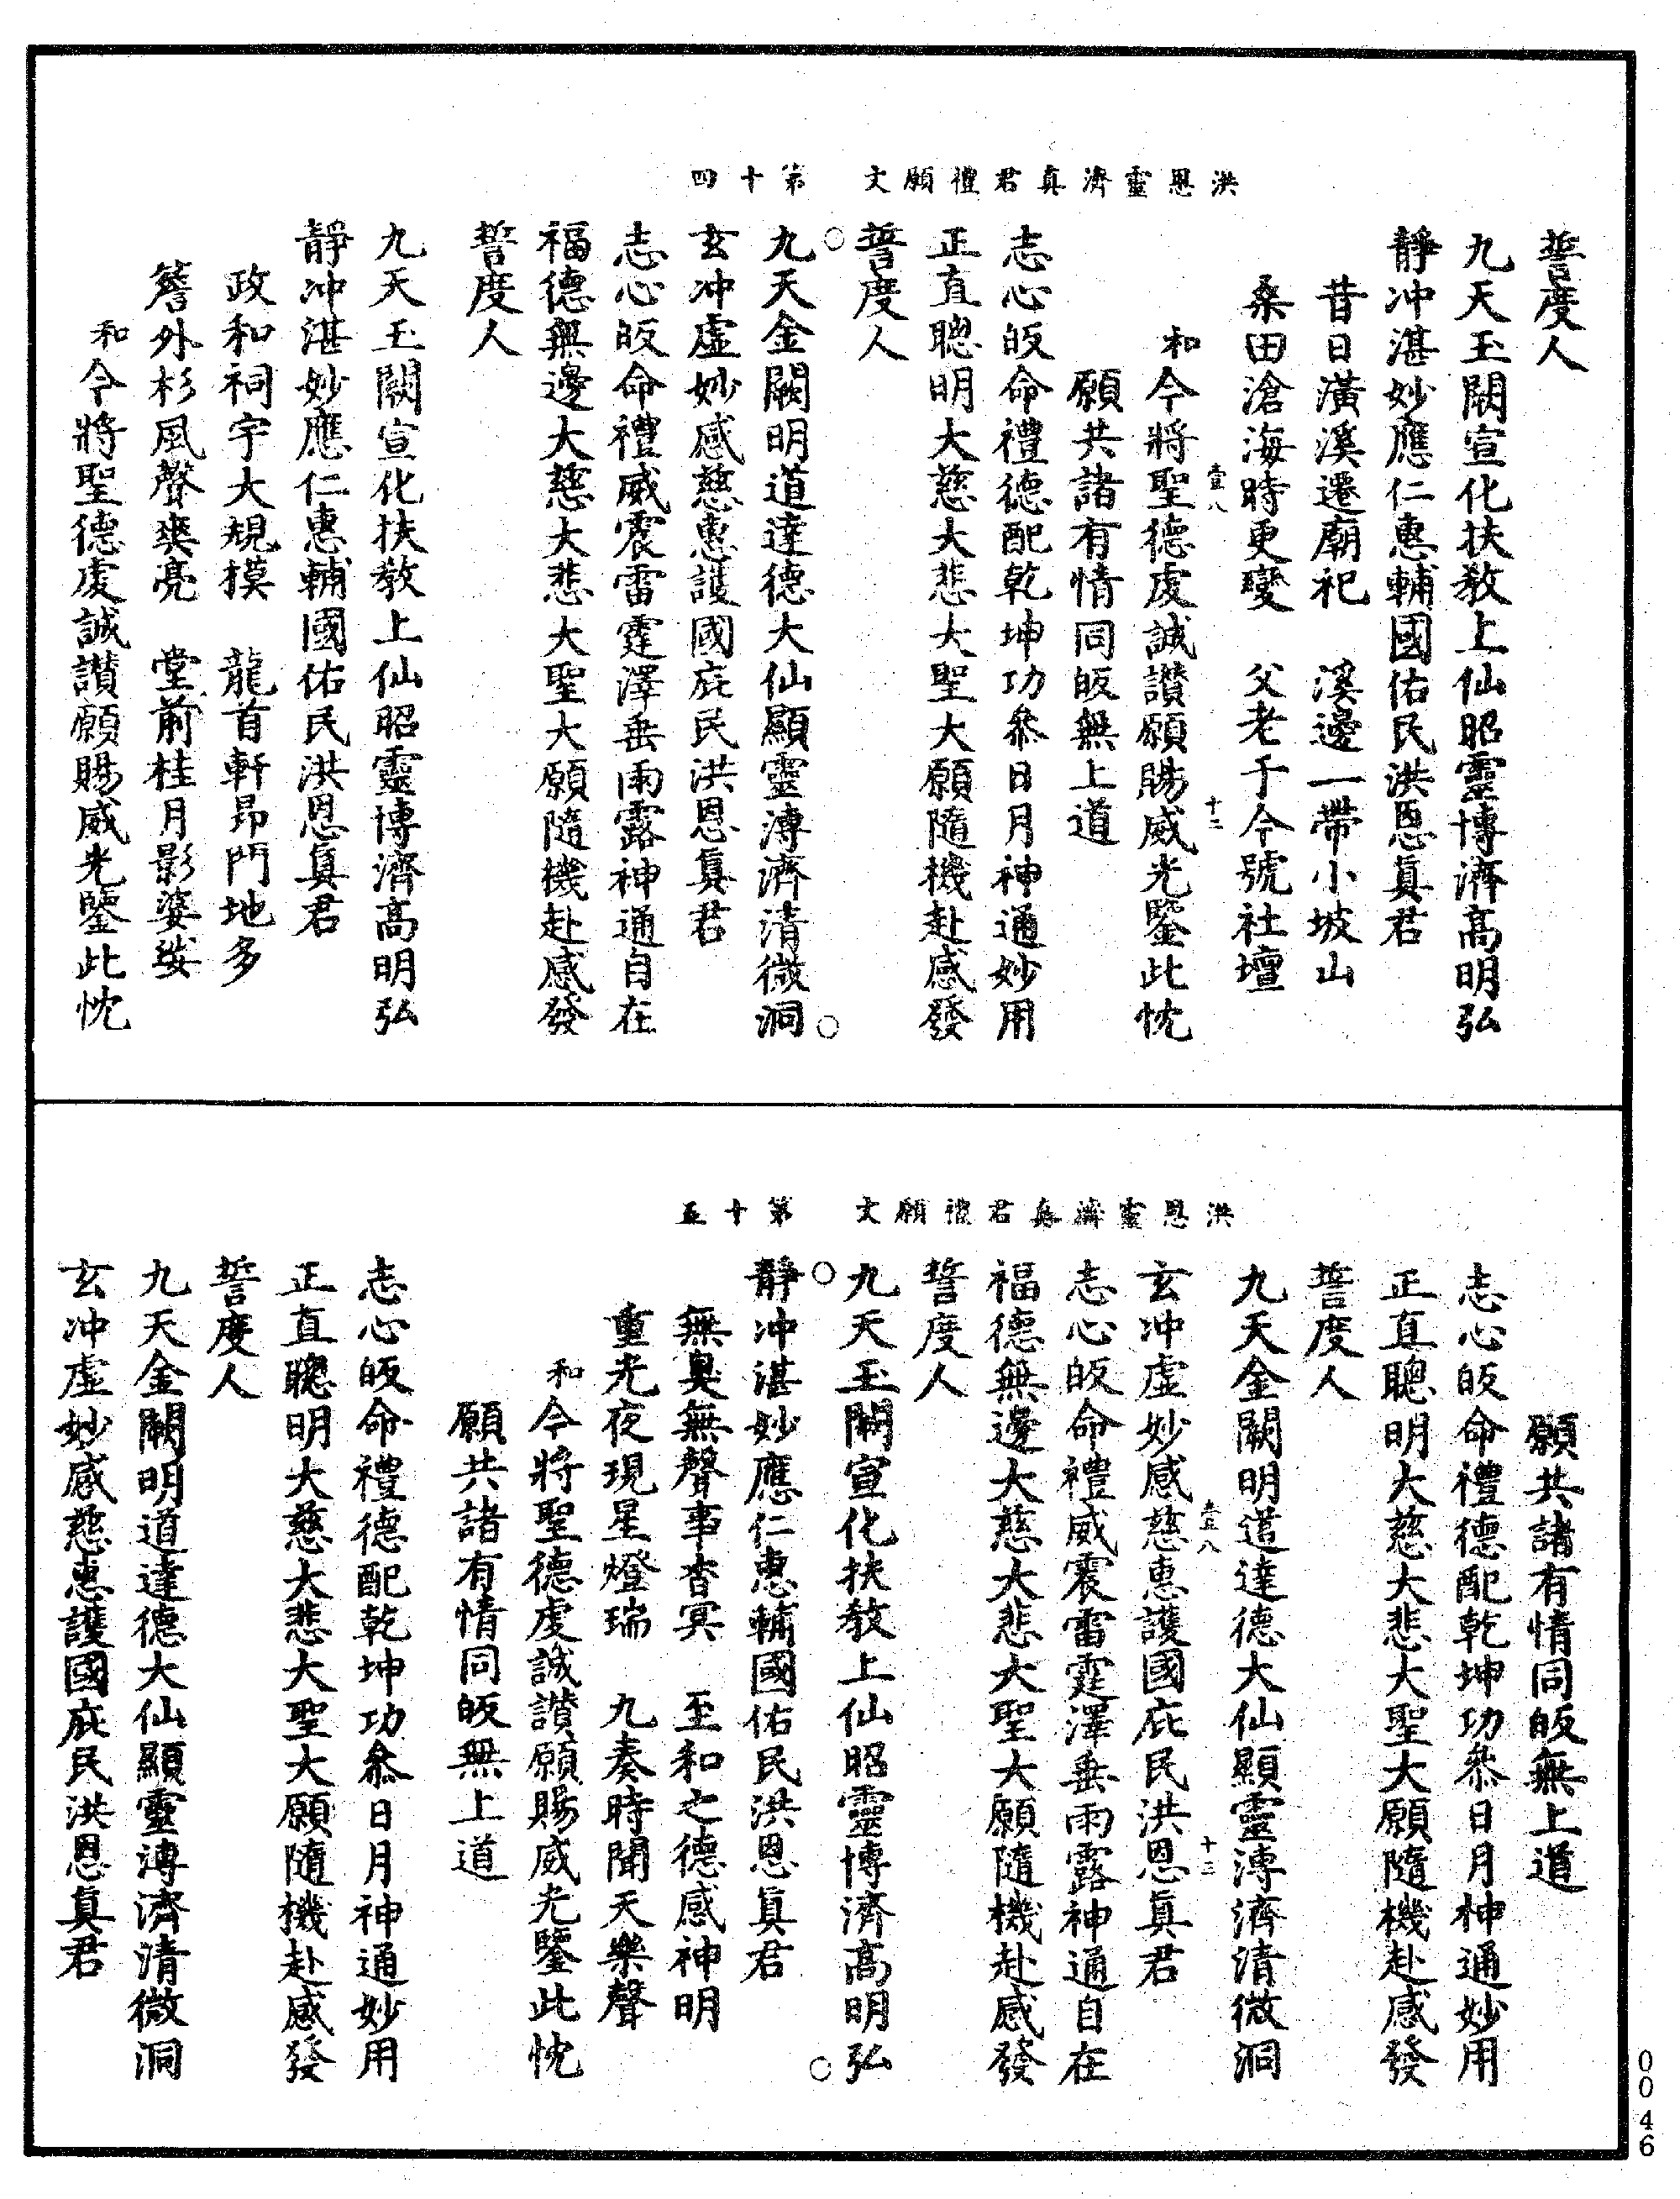 洪恩靈濟真君禮願文　第十四
誓度人
九天玉闕宣化扶教上仙昭靈博濟高明弘
靜冲湛妙應仁惠輔國佑民洪恩真君
昔日潢溪遷廟祀　溪邊一帶小坡山
桑田滄海時更變　父老于今號社壇
和今將聖德虔誠讃願賜威光鑒此忱
壹八　十二
願共諸有情同皈無上道
志心皈命禮德配乾坤功叅日月神通妙用
正直聰明大慈大悲大聖大願隨機赴感發
誓度人
○　○
九天金闕明道達德大仙顯靈溥濟清微洞
玄冲虛妙感慈惠護國庇民洪恩真君
志心皈命禮威震雷霆澤垂雨露神通自在
福德無邊大慈大悲大聖大願隨機赴感發
誓度人
九天玉闕宣化扶教上仙昭靈博濟高明弘
靜冲湛妙應仁惠輔國佑民洪恩真君
政和祠宇大規模　龍首軒昂門地多
簷外杉風聲爽亮　堂前桂月影婆娑
和今將聖德虔誠讃願賜威光鑒此忱
洪恩靈濟真君禮願文　第十五
願共諸有情同皈無上道
志心皈命禮德配乾坤功叅日月神通妙用
正直聰明大慈大悲大聖大願隨機赴感發
誓度人
九天金闕明道達德大仙顯靈溥濟清微洞
壹八　十三
玄冲虛妙感慈惠護國庇民洪恩真君
志心皈命禮威震雷霆澤垂雨露神通自在
福德無邊大慈大悲大聖大願隨機赴感發
誓度人
九天玉闕宣化扶教上仙昭靈博濟高明弘
○　○
靜冲湛妙應仁惠輔國佑民洪恩真君
無臭無聲事杳冥　至和之德感神明
重光夜現星燈瑞　九奏時聞天樂聲
和今將聖德虔誠讃願賜威光鑒此忱
願共諸有情同皈無上道
志心皈命禮德配乾坤功叅日月神通妙用
正直聰明大慈大悲大聖大願隨機赴感發
誓度人
九天金闕明道達德大仙顯靈溥濟清微洞
玄冲虛妙感慈惠護國庇民洪恩真君
0046